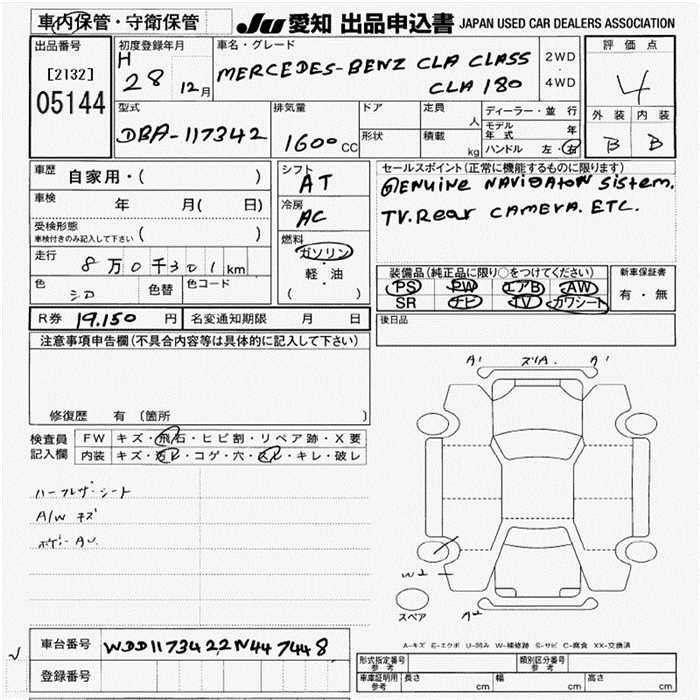 車内保管・守衛保管
JU 愛知 出品申込書 JAPAN USED CAR DEALERS ASSOCIATION
出品番号
[2132]
05144
初度登録年月
H
28 12月
車名・グレード
MERCEDES-BENZ CLA CLASS
CLA 180
2WD
4WD
評価点
4
外装 内装
B B
型式
DBA-117342
排気量
1600 CC
ドア
形状
定員
人
積載
kg
ディーラー・並行
モデル
年式 年
ハンドル 左・右
車歴
自家用・( )
車検
年 月( 日)
受検形態
車検付きのみ記入して下さい ( )
走行
8万0千301km
色
シロ
色替
色コード
シフト
AT
冷房
AC
燃料
ガソリン
・
軽・油
( )
セールスポイント(正常に機能するものに限ります)
GENUINE NAVIGATON SiStem.
TV.Rear CAMERA. ETC.
装備品(純正品に限り○をつけてください)
PS PW エアB AW
SR ナビ TV カワシート
新車保証書
有・無
R券 19.150 円
名変通知期限 月 日
後日品
注意事項申告欄(不具合内容等は具体的に記入して下さい)
修復歴 有 〔箇所 〕
検査員
記入欄
FW キズ・飛石・ヒビ割・リペア跡・X要
内装 キズ・汚レ・コゲ・穴・スレ・キレ・破レ
ハーフレザーシート
A/W キズ
ボデーAU
A1 ズリA. A1
W2
A2
スペア
A-キズ E-エクボ U-凹み W-補修跡 S-サビ C-腐食 XX-交換済
車台番号
WDD1173422N447448
登録番号
形式指定番号
参考
類別区分番号
参考
車庫証明用
参考
長さ cm 幅 cm 高さ cm